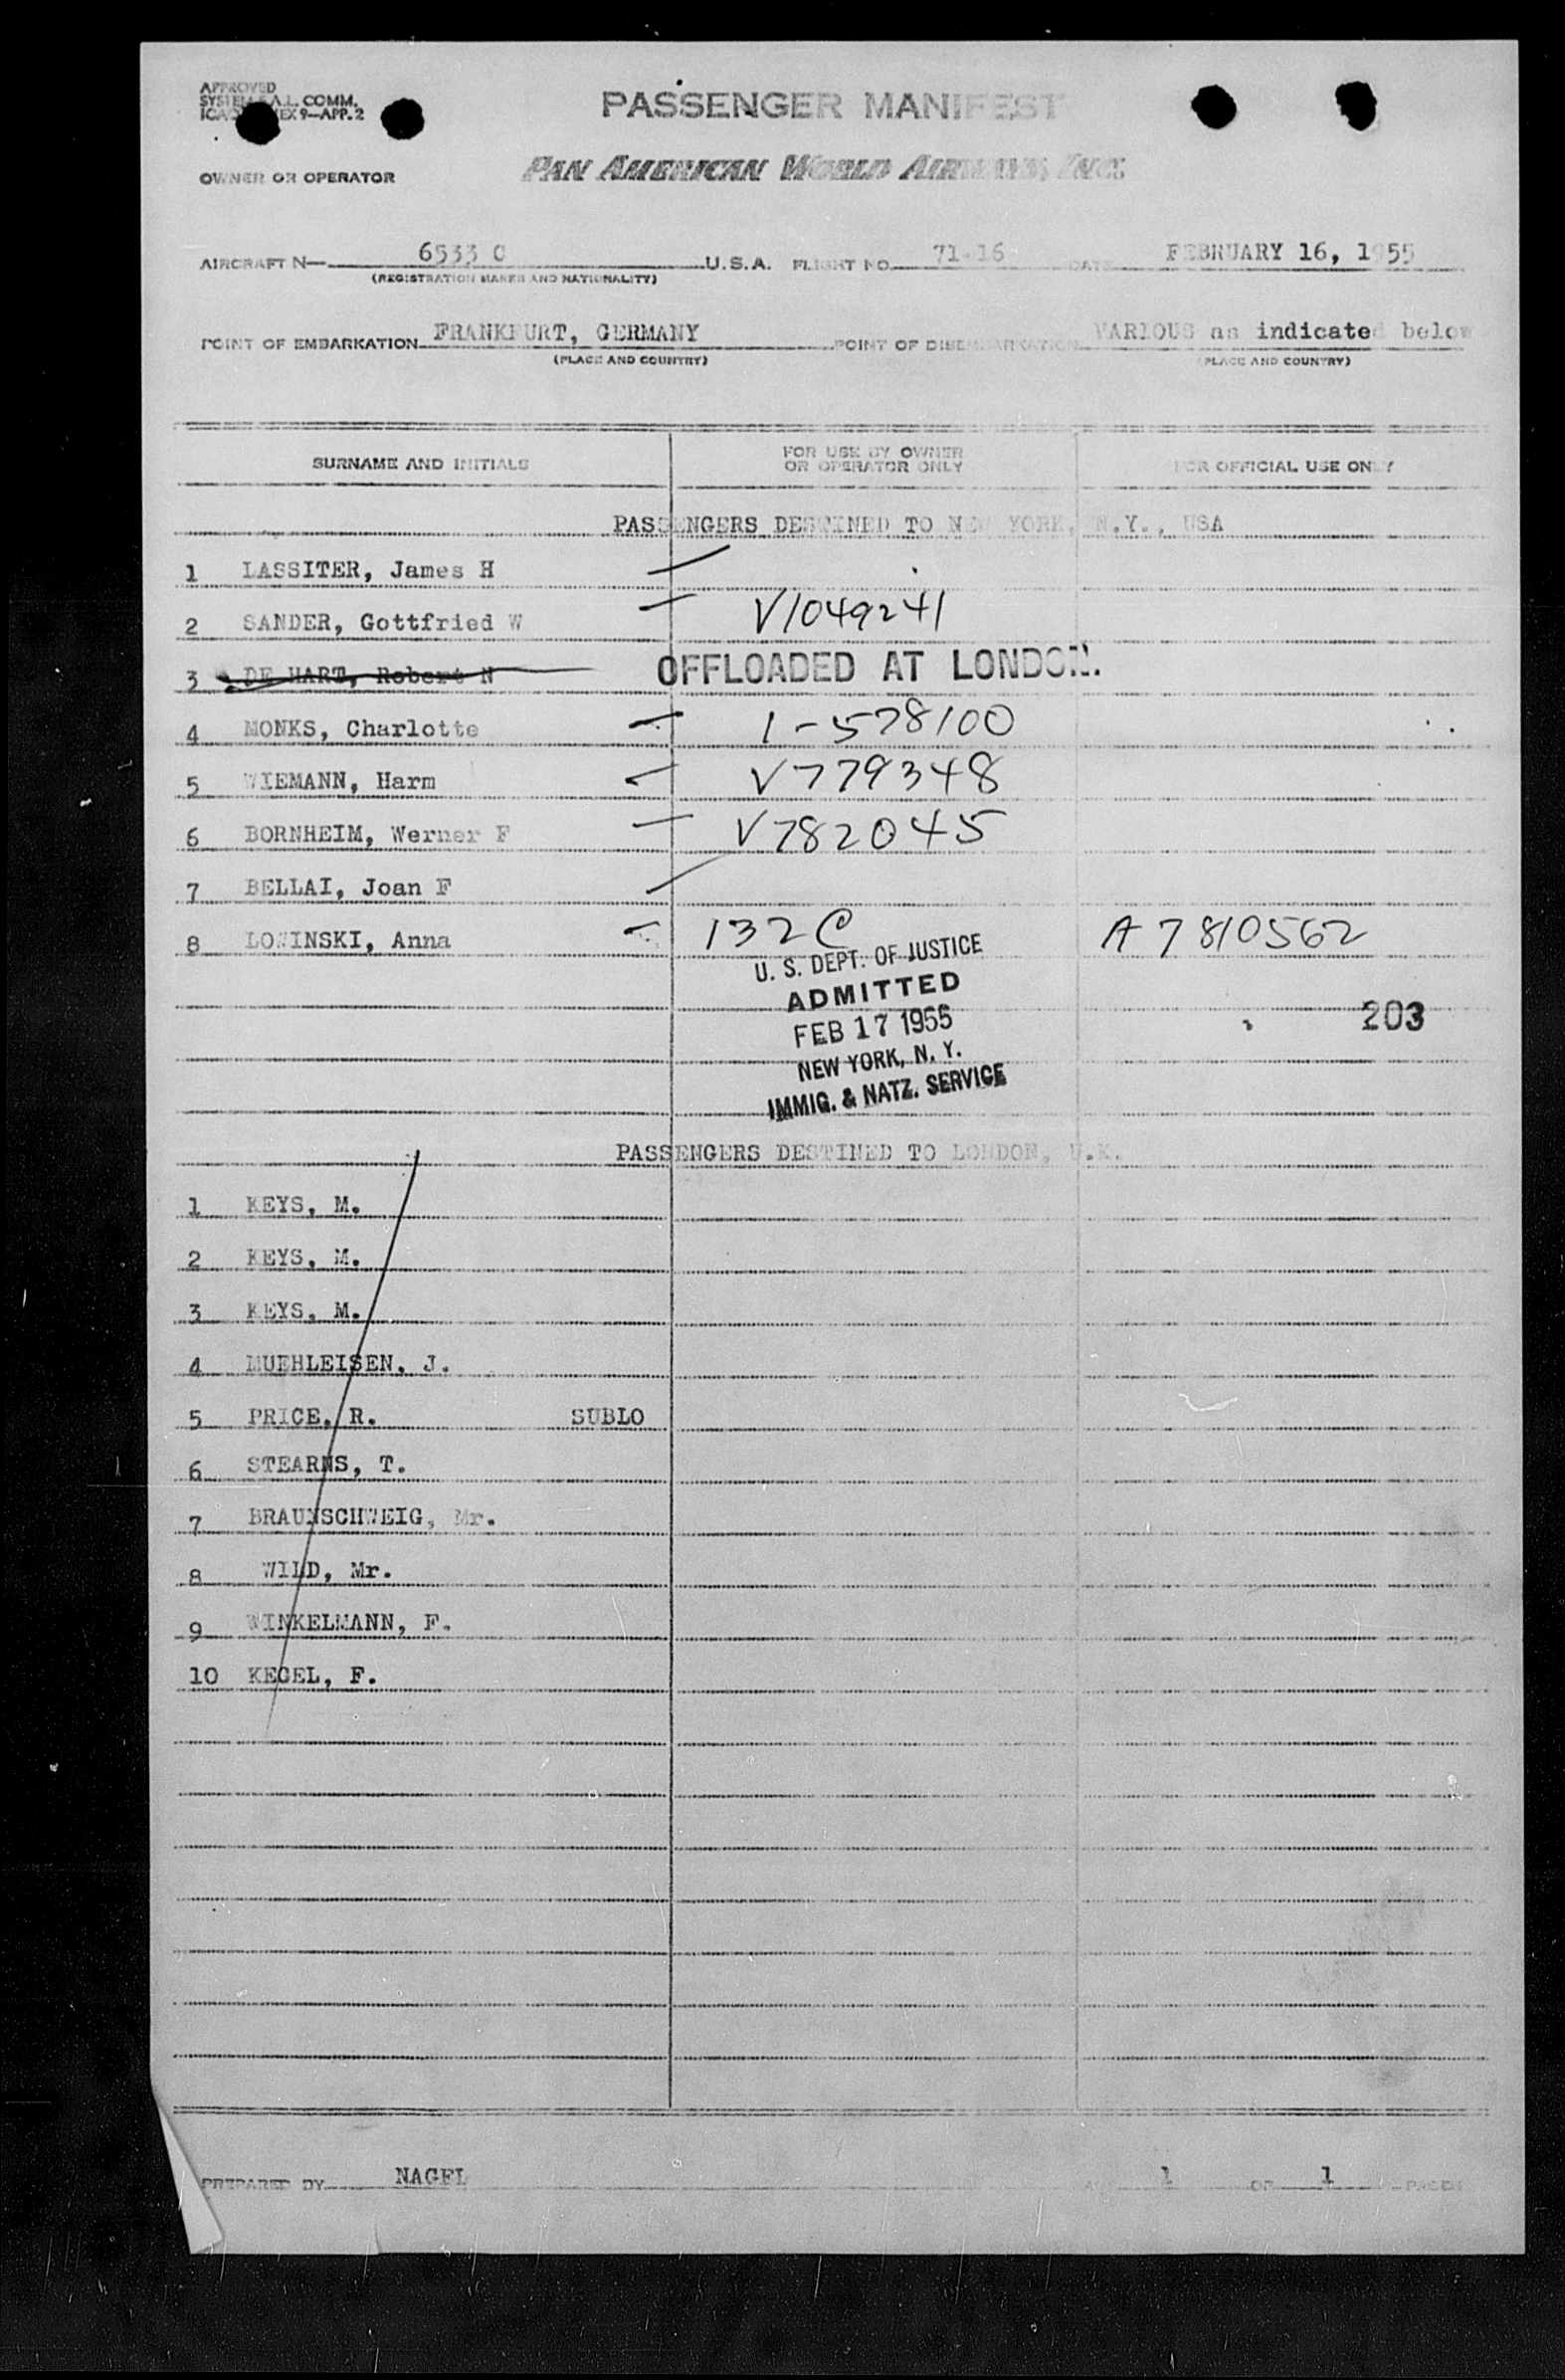 APPROVED
SYSTEM F.A.L. COMM.
ICAO ANNEX 9—APP. 2
PASSENGER MANIFEST
OWNER OR OPERATOR PAN AMERICAN WORLD AIRWAYS, INC.
AIRCRAFT N— 6533 C U.S.A. FLIGHT NO. 71-16 DATE FEBRUARY 16, 1955
(REGISTRATION MARKS AND NATIONALITY)
POINT OF EMBARKATION FRANKFURT, GERMANY POINT OF DISEMBARKATION VARIOUS as indicated below
(PLACE AND COUNTRY) (PLACE AND COUNTRY)
SURNAME AND INITIALS FOR USE BY OWNER OR OPERATOR ONLY FOR OFFICIAL USE ONLY
PASSENGERS DESTINED TO NEW YORK, N.Y., USA
1 LASSITER, James H
2 SANDER, Gottfried W V1049241
3 DE HART, Robert N OFFLOADED AT LONDON.
4 MONKS, Charlotte 1-578100
5 WIEMANN, Harm V779348
6 BORNHEIM, Werner F V782045
7 BELLAI, Joan F
8 LOWINSKI, Anna 132C A7810562
U. S. DEPT. OF JUSTICE
ADMITTED
FEB 17 1955
203
NEW YORK, N. Y.
IMMIG. & NATZ. SERVICE
PASSENGERS DESTINED TO LONDON, U.K.
1 KEYS, M.
2 KEYS, M.
3 KEYS, M.
4 MUEHLEISEN, J.
5 PRICE, R. SUBLO
6 STEARNS, T.
7 BRAUNSCHWEIG, Mr.
8 WILD, Mr.
9 WINKELMANN, F.
10 KEGEL, F.
PREPARED BY NAGEL 1 OF 1 PAGES